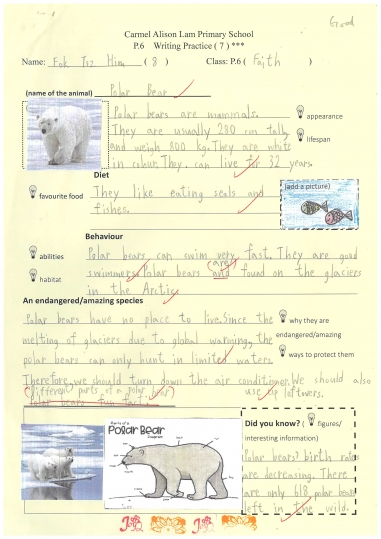 Good
Carmel Alison Lam Primary School
P.6 Writing Practice ( 7 ) ***
Name: Fok Tsz Him ( 8 ) Class: P.6 ( Faith )
(name of the animal) Polar Bear
Polar bears are mammals.
appearance
They are usually 280 cm tall
lifespan
and weigh 800 kg. They are white
in colour. They can live for 32 years.
Diet
favourite food
They like eating seals and
fishes.
(add a picture)
Behaviour
abilities
Polar bears can swim very fast. They are good
habitat
swimmers. Polar bears and (are) found on the glaciers
in the Arctic.
An endangered/amazing species
Polar bears have no place to live. Since the
why they are endangered/amazing
melting of glaciers due to global warming, the
ways to protect them
polar bears can only hunt in limited waters.
Therefore, we should turn down the air conditioner. We should also
use up leftovers.
(Different parts of a polar bear)
Polar bears fun facts
Parts of a
POLAR BEAR
Diagram
Did you know? ( figures/
interesting information)
Polar bears' birth rates
are decreasing. There
are only 618 polar bears
left in the wild.